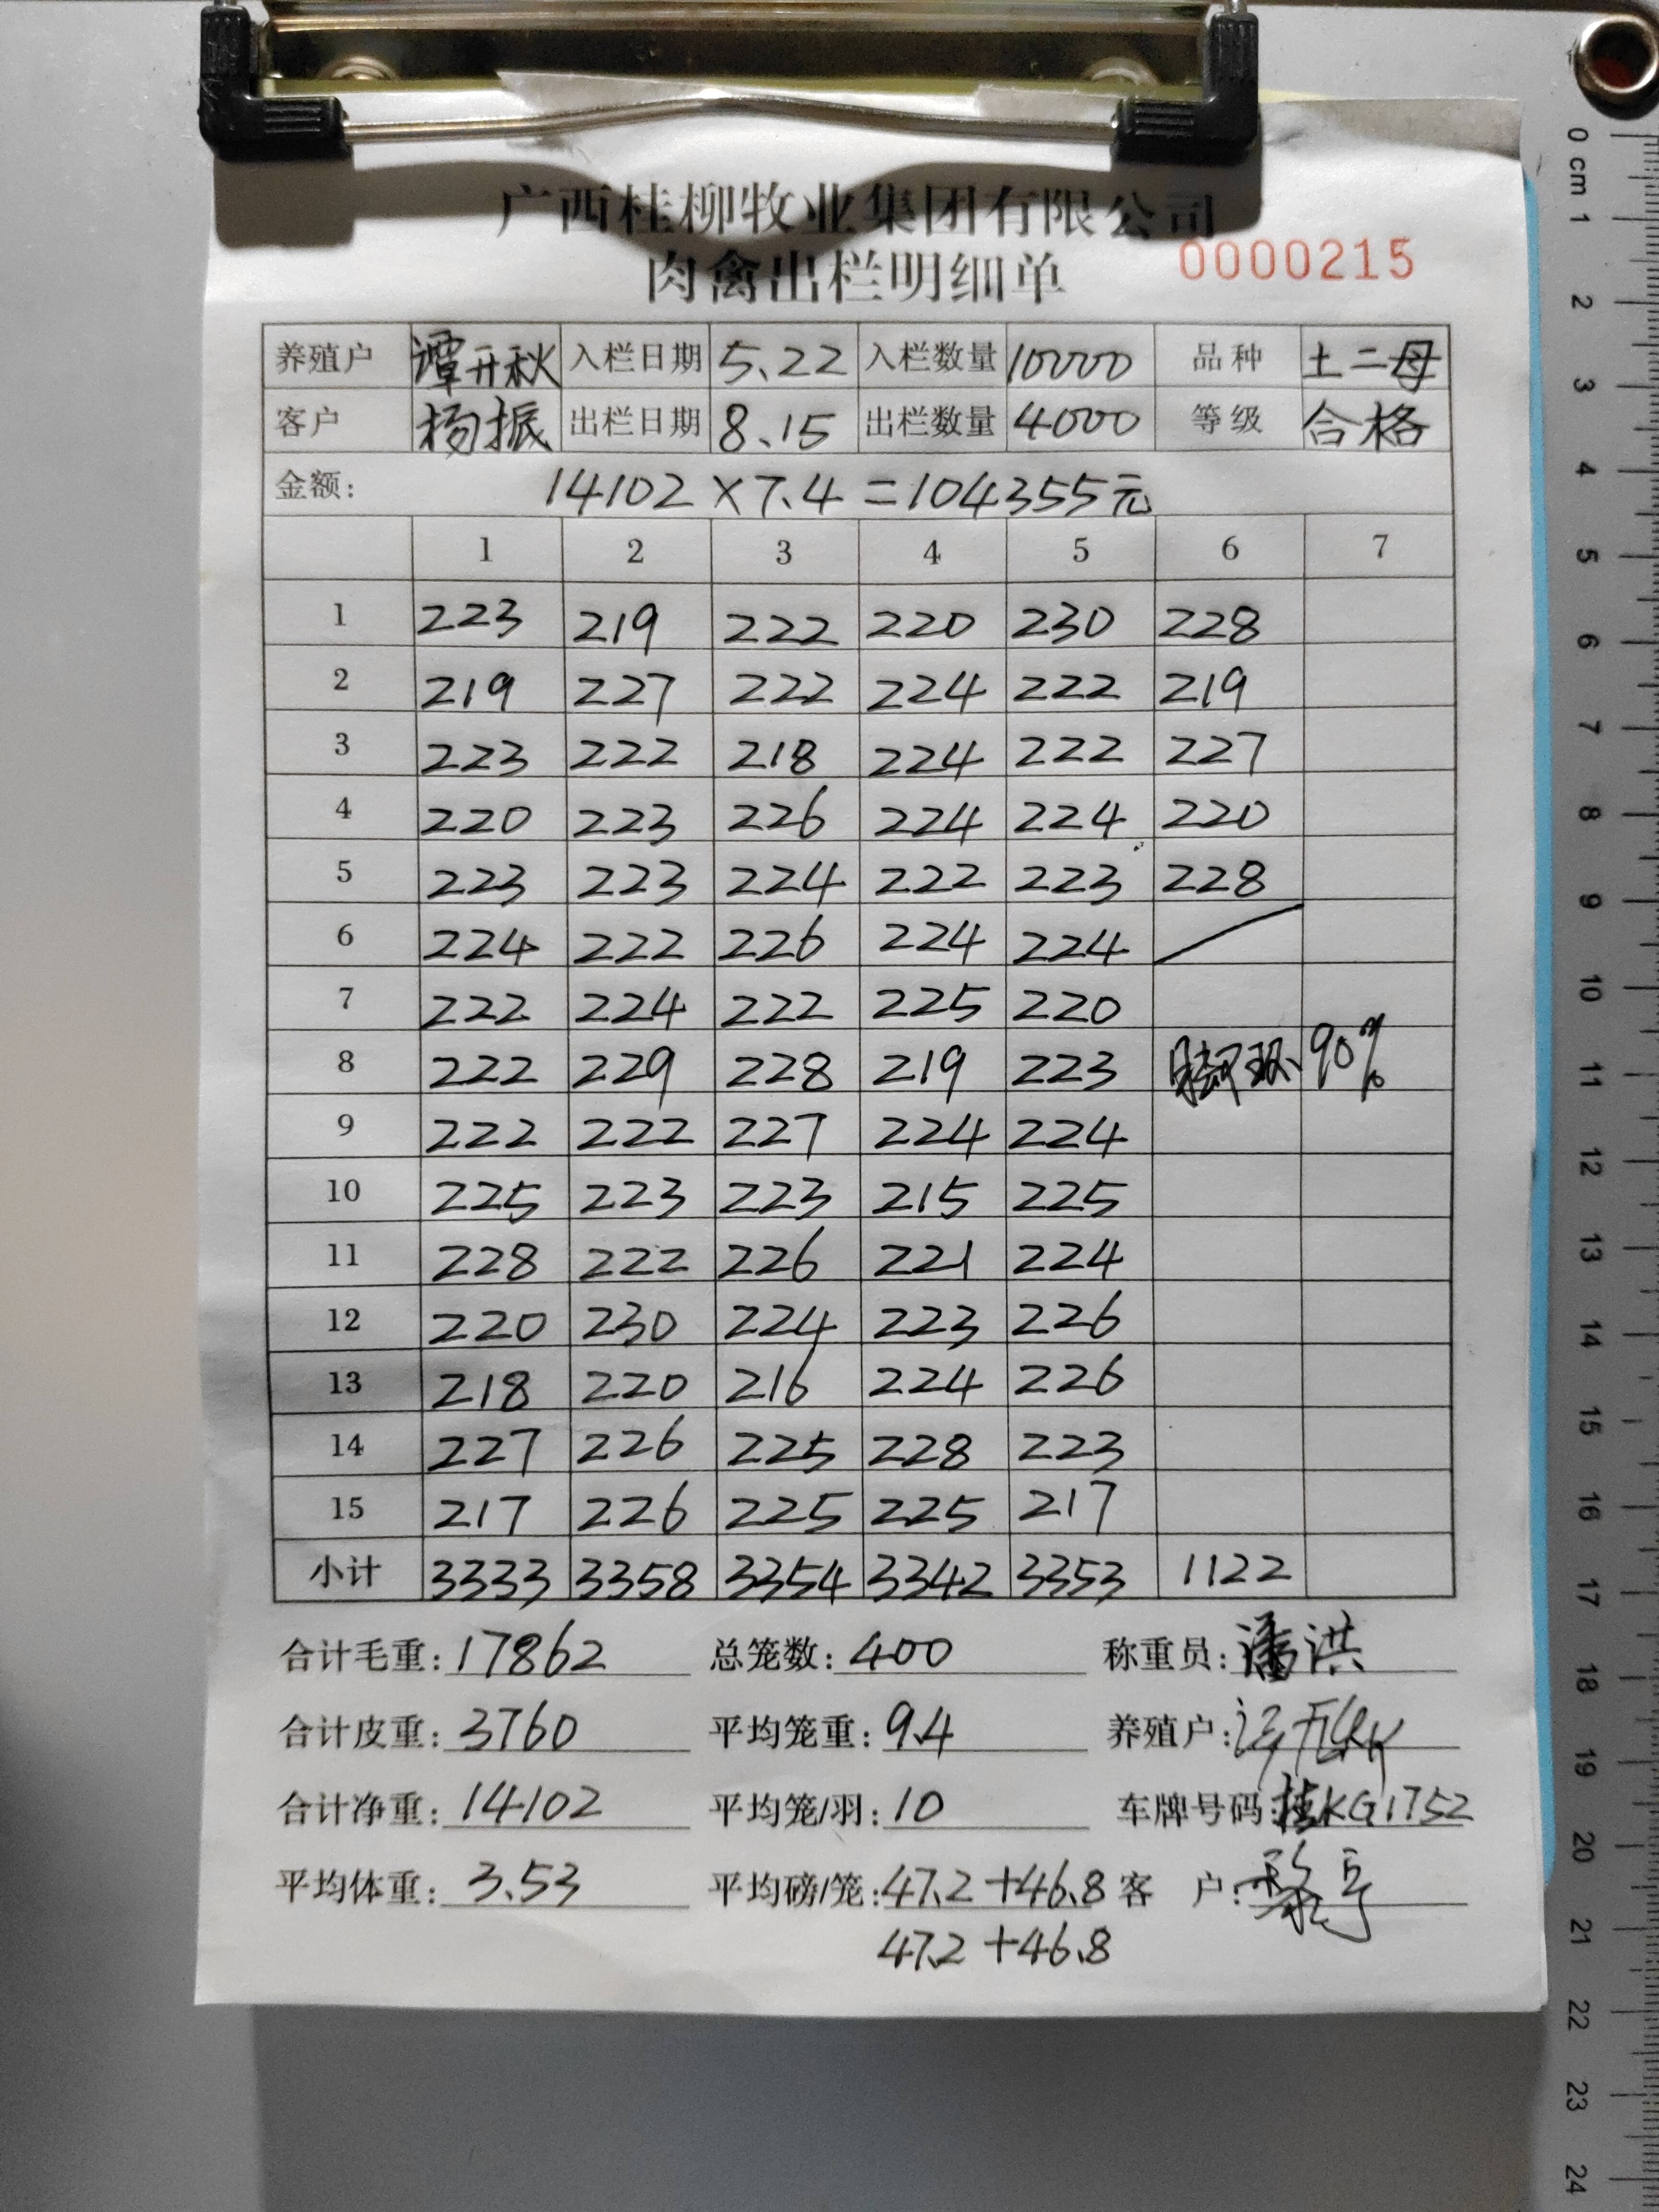 广西桂柳牧业集团有限公司
肉禽出栏明细单 0000215
养殖户 谭开秋 入栏日期 5.22 入栏数量 10000 品种 土二母
客户 杨振 出栏日期 8.15 出栏数量 4000 等级 合格
金额: 14102×7.4=104355元
1 2 3 4 5 6 7
1 223 219 222 220 230 228
2 219 227 222 224 222 219
3 223 222 218 224 222 227
4 220 223 226 224 224 220
5 223 223 224 222 223 228
6 224 222 226 224 224
7 222 224 222 225 220
8 222 229 228 219 223 脚环 90%
9 222 222 227 224 224
10 225 223 223 215 225
11 228 222 226 221 224
12 220 230 224 223 226
13 218 220 216 224 226
14 227 226 225 228 223
15 217 226 225 225 217
小计 3333 3358 3354 3342 3353 1122
合计毛重: 17862 总笼数: 400 称重员: 潘洪
合计皮重: 3760 平均笼重: 9.4 养殖户:
合计净重: 14102 平均笼/羽: 10 车牌号码: 桂KG1752
平均体重: 3.53 平均磅/笼: 47.2+46.8 客 户:
47.2+46.8
0 cm 1 2 3 4 5 6 7 8 9 10 11 12 13 14 15 16 17 18 19 20 21 22 23 24